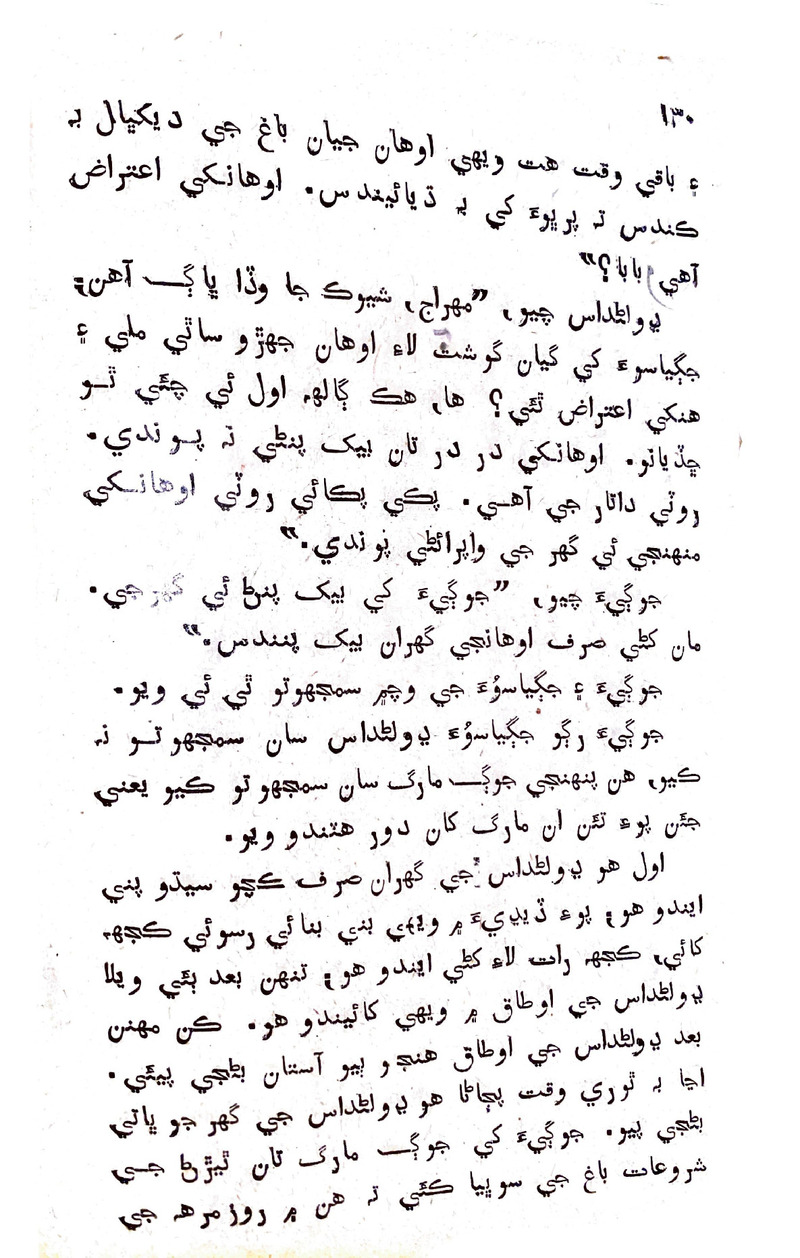 ١٣٠
۽ باقي وقت هت ويهي اوهان جيان باغ جي ديکڀال بہ
ڪندس تہ پرڀوءَ کي بہ ڌيائيندس. اوهانکي اعتراض
آهي بابا؟“
ڊولڻداس چيو، ”مهراج، شيوڪ جا وڏا ڀاڳ آهن؛
جڳياسوءَ کي گيان گوشت لاءِ اوهان جهڙو ساٿي ملي ۽
هنکي اعتراض ٿئي؟ ها، هڪ ڳالهہ اول ئي چئي ٿو
ڇڏيانو. اوهانکي در در تان بيک پنڻي نہ پوندي.
روٽي داتار جي آهي. پڪي پڪائي روٽي اوهانکي
منهنجي ئي گهر جي واپرائڻي پوندي.“
جوڳيءَ چيو، ”جوڳيءَ کي بيک پنڻ ئي گهرجي.
مان کڻي صرف اوهانجي گهران بيک پنندس.“
جوڳيءَ ۽ جڳياسوُءَ جي وچ۾ سمجهوتو ٿي ئي ويو.
جوڳيءَ رڳو جڳياسوُءَ ڊولڻداس سان سمجهوتو نہ
ڪيو، هن پنهنجي جوڳ مارگ سان سمجهوتو ڪيو يعني
جئن پوءِ تئن ان مارگ کان دور هٽندو ويو.
اول هو ڊولڻداس جي گهران صرف ڪچو سيڌو پني
ايندو هو؛ پوءِ ڏيڍيءَ ۾ ويهي بني بنائي رسوئي ڪجهہ
کائي، ڪجهہ رات لاءِ کڻي ايندو هو؛ تنهن بعد ٻئي ويلا
ڊولڻداس جي اوطاق ۾ ويهي کائيندو هو. ڪن مهنن
بعد ڊولڻداس جي اوطاق هنجو ٻيو آستان بڻجي پيئي.
اڃا بہ ٿوري وقت پڄاڻا هو ڊولڻداس جي گهر جو ڀاتي
بڻجي پيو. جوڳيءَ کي جوڳ مارگ تان ٿيڙڻ جي
شروعات باغ جي سوڀيا ڪئي تہ هن ۾ روزمرهہ جي